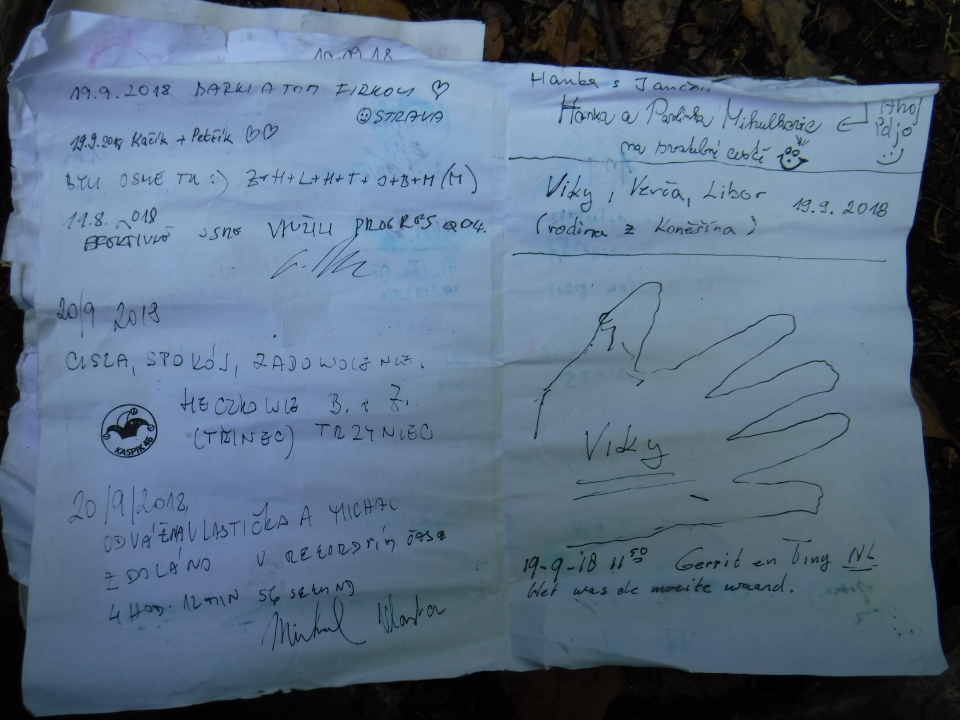 19.09.18
19.9.2018 BARKA A TOM
☺STRAVA
19.9.2018 Kačík + Petřík ♡♡
BYLI OSME TU :) Z+H+L+H+T+O+B+M (M)
11.8. 2018
EFEKTIVNĚ JSME VYUŽILI PROGRES
20/9 2018
CISZA, SPOKÓJ, ZADOWOLENIE.
HECZKOWIE B. i Z.
(TŘINEC) TRZYNIEC
KASPIK46
20/9/2018,
ODVÁŽNÁ VLASTIČKA A MICHAL
ZDOLÁNO V REKORDNÍM ČASE
4 HOD. 12 MIN 56 SEKUND
Michal Vlasta
Hanka s
Hanka a Pavlínka
na svatební cestě
Ahoj
Viky, Verča, Libor
19.9.2018
(rodina z Koněšína)
Viky
19-9-'18 11 50 Gerrit en Tiny NL
Het was de moeite waard.